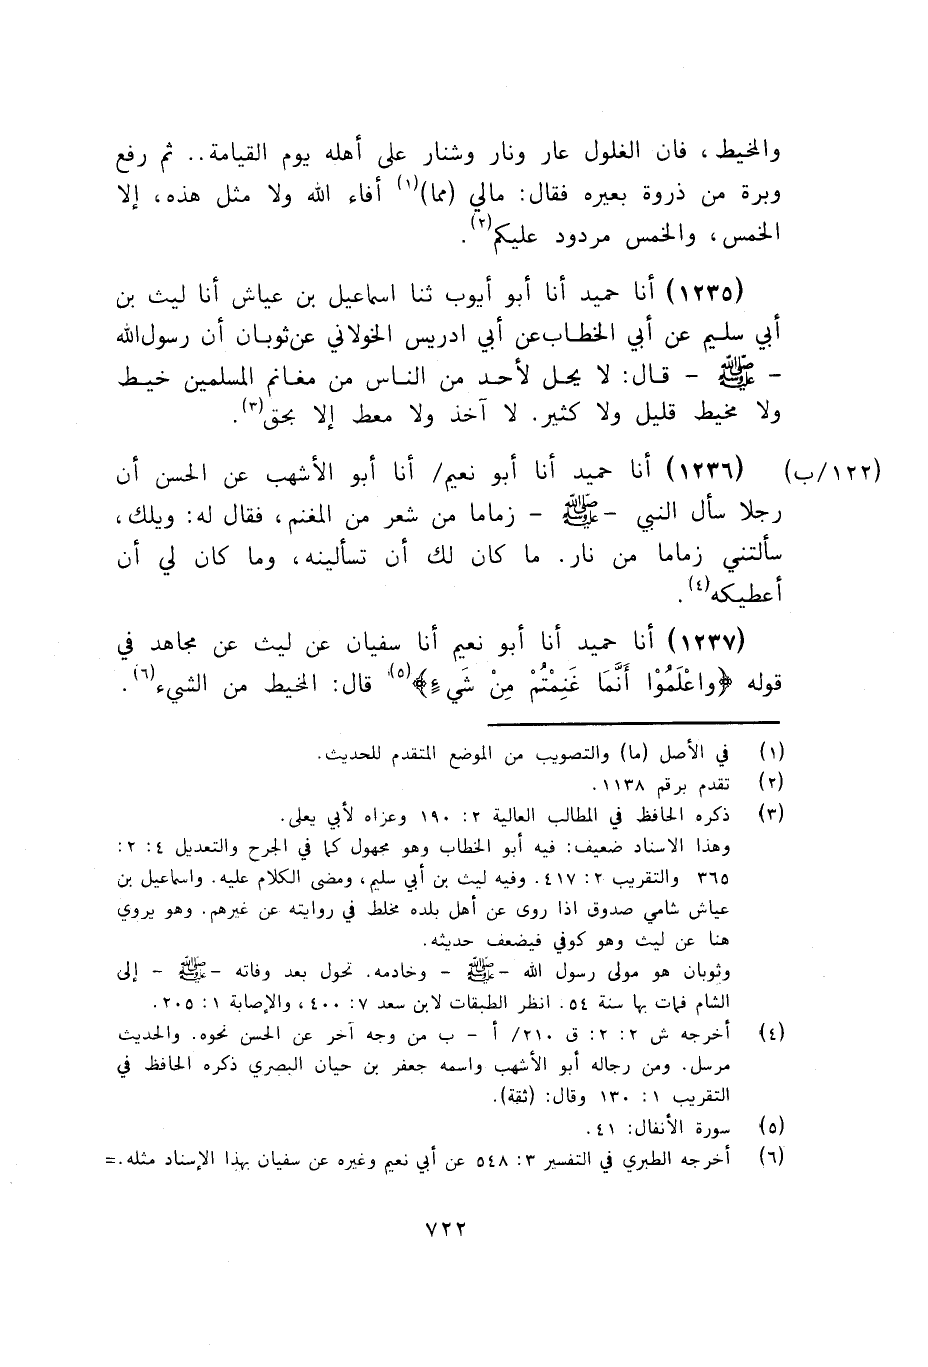 والمخيط، فان الغلول عار ونار وشنار على أهله يوم القيامة.. ثم رفع
وبرة من ذروة بعيره فقال: مالي (مما)(١) أفاء الله ولا مثل هذه، إلا
الخمس، والخمس مردود عليكم(٢).
(١٢٣٥) أنا حميد أنا أبو أيوب ثنا اسماعيل بن عياش أنا ليث بن
أبي سليم عن أبي الخطاب عن أبي ادريس الخولاني عن ثوبان أن رسول الله
- ﷺ - قال: لا يحل لأحد من الناس من مغانم المسلمين خيط
ولا مخيط قليل ولا كثير. لا آخذ ولا معط إلا بحق(٣).
(١٢٢/ب) (١٢٣٦) أنا حميد أنا أبو نعيم/ أنا أبو الأشهب عن الحسن أن
رجلا سأل النبي - ﷺ - زماما من شعر من المغنم، فقال له: ويلك،
سألتني زماما من نار. ما كان لك أن تسألينه، وما كان لي أن
أعطيكه(٤).
(١٢٣٧) أنا حميد أنا أبو نعيم أنا سفيان عن ليث عن مجاهد في
قوله ﴿واعْلَمُوْا أَنَّمَا غَنِمْتُمْ مِنْ شَيءٍ﴾(٥) قال: المخيط من الشيء(٦).
(١) في الأصل (ما) والتصويب من الموضع المتقدم للحديث.
(٢) تقدم برقم ١١٣٨.
(٣) ذكره الحافظ في المطالب العالية ٢: ١٩٠ وعزاه لأبي يعلى.
وهذا الاسناد ضعيف: فيه أبو الخطاب وهو مجهول كما في الجرح والتعديل ٤: ٢:
٣٦٥ والتقريب ٢: ٤١٧. وفيه ليث بن أبي سليم، ومضى الكلام عليه. واسماعيل بن
عياش شامي صدوق اذا روى عن أهل بلده مخلط في روايته عن غيرهم. وهو يروي
هنا عن ليث وهو كوفي فيضعف حديثه.
وثوبان هو مولى رسول الله - ﷺ - وخادمه. تحول بعد وفاته - ﷺ - إلى
الشام فمات بها سنة ٥٤. انظر الطبقات لابن سعد ٧: ٤٠٠، والإصابة ١: ٢٠٥.
(٤) أخرجه ش ٢: ٢: ق ٢١٠/ أ - ب من وجه آخر عن الحسن نحوه. والحديث
مرسل. ومن رجاله أبو الأشهب واسمه جعفر بن حيان البصري ذكره الحافظ في
التقريب ١: ١٣٠ وقال: (ثقة).
(٥) سورة الأنفال: ٤١.
(٦) أخرجه الطبري في التفسير ٣: ٥٤٨ عن أبي نعيم وغيره عن سفيان بهذا الإسناد مثله.=
٧٢٢